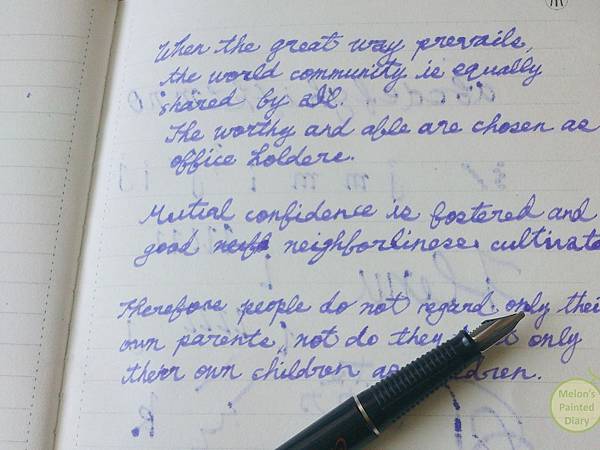 When the great way prevails,
the world community is equally
shared by all.
The worthy and able are chosen as
office holders.
Mutial confidence is fostered and
good neighborliness cultivate
Therefore people do not regard only thei
own parents, not do they only
their own children as
Melon's
Painted
Diary